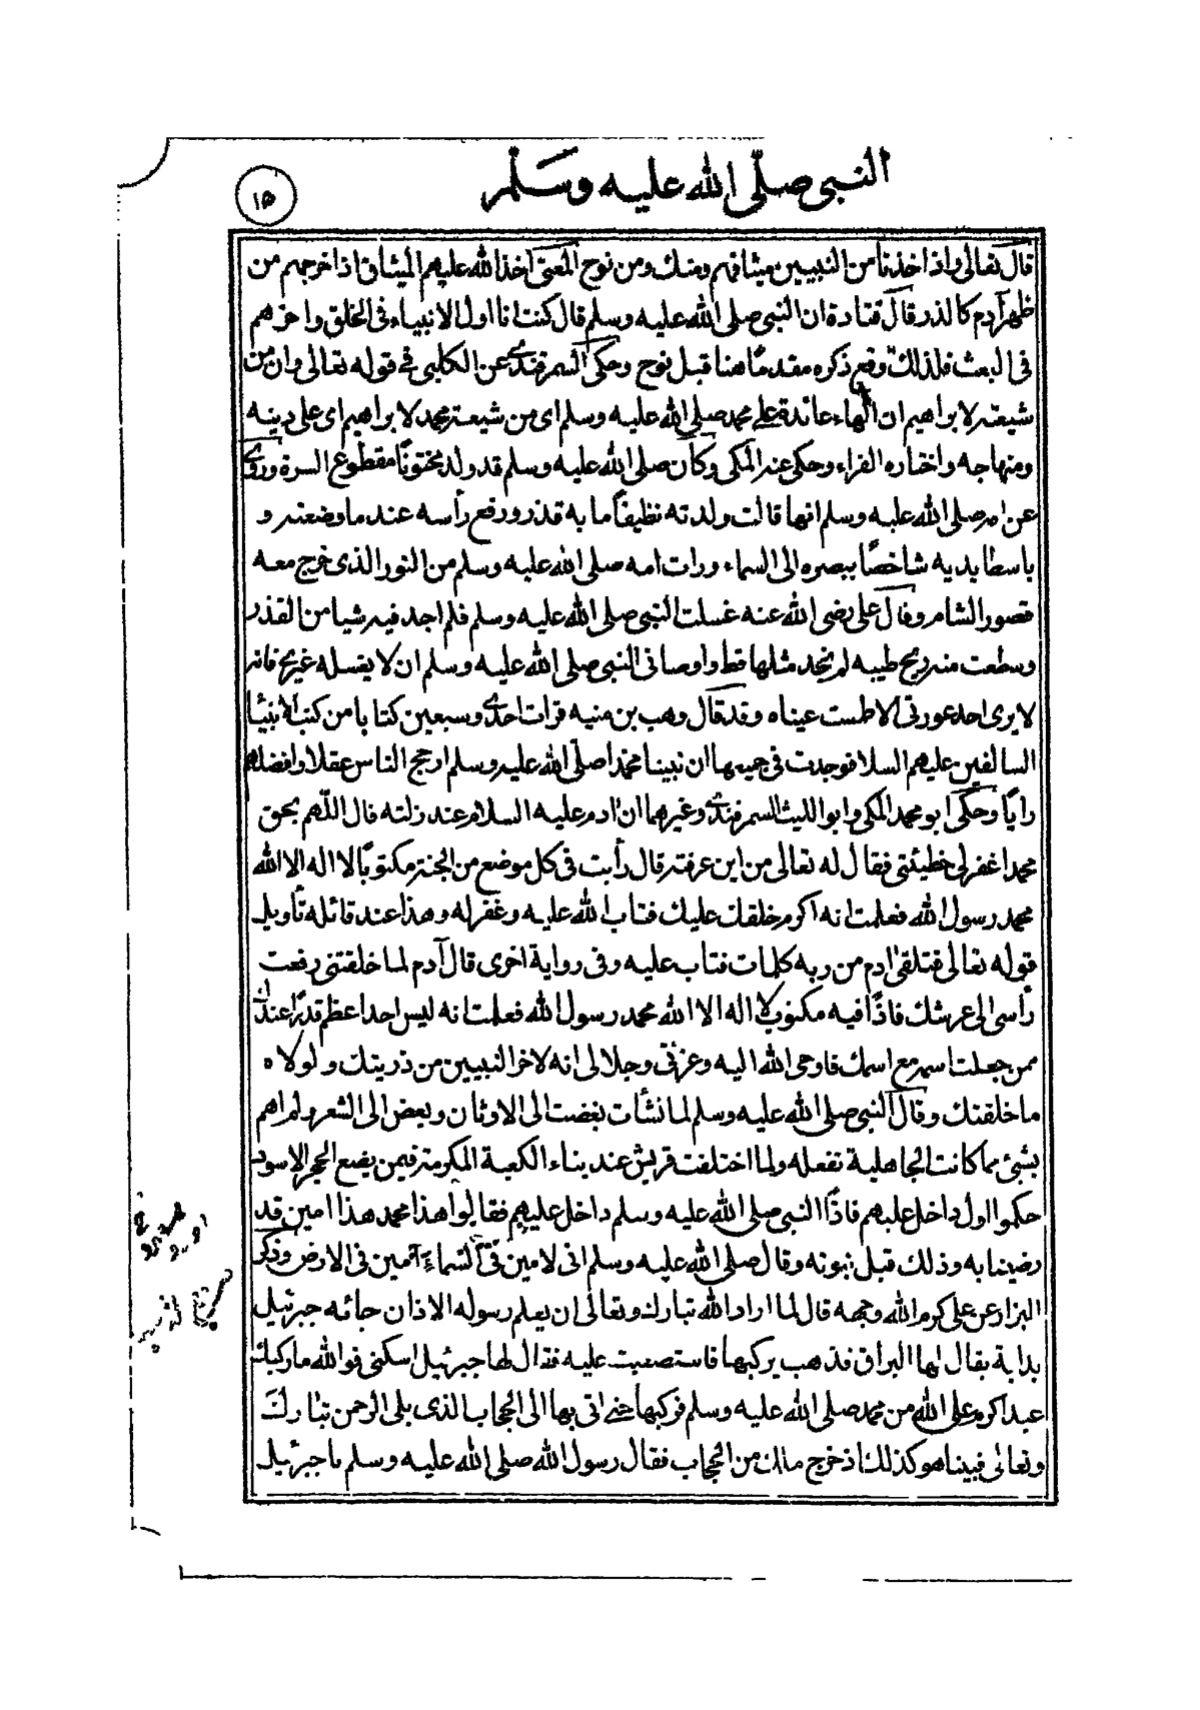 النبى صلّى الله عليه وسَلّم
١٥
قال تعالى واذ اخذنا من النبيين ميثاقهم ومنك ومن نوح المعنى اخذ الله عليهم الميثاق اذ اخرجهم من
ظهر آدم كالذر قال قتادة ان النبى صلى الله عليه وسلم قال كنت انا اول الانبياء فى الخلق واخرهم
فى البعث فلذلك وقع ذكره مقدمًا هنا قبل نوح وحكى السمرقندى عن الكلبى فى قوله تعالى وان من
شيعته لابراهيم ان الهاء عائدة على محمد صلى الله عليه وسلم اى من شيعة محمد لابراهيم اى على دينه
ومنهاجه واختاره الفراء وحكى عنه المكى وكان صلى الله عليه وسلم قد ولد مختونًا مقطوع السرة وروى
عن امه صلى الله عليه وسلم انها قالت ولدته نظيفًا ما به قذر ورفع رأسه عند ما وضعته و
باسطا يديه شاخصًا ببصره الى السماء ورات امه صلى الله عليه وسلم من النور الذى خرج معه
قصور الشام وقال على رضى الله عنه غسلت النبى صلى الله عليه وسلم فلم اجد فيه شيا من القذر
وسطعت منه ريح طيبه لم نجد مثلها قط واوصانى النبى صلى الله عليه وسلم ان لا يغسله غيرى فانه
لا يرى احد عورتى الا طمست عيناه وقد قال وهب بن منبه قرات احدى وسبعين كتابا من كتب الانبيا
السالفين عليهم السلا فوجدت فى جميعها ان نبينا محمدا صلّى الله عليه وسلم ارجح الناس عقلا وافضلهم
رايًا وحكى ابو محمد المكى وابو الليث السمرقندى وغيرهما ان ادم عليه السلام عند زلته قال اللّهم بحق
محمد اغفر لى خطيئتى فقال له تعالى من اين عرفته قال رأيت فى كل موضع من الجنة مكتوبًا لا اله الا الله
محمد رسول الله فعلمت انه اكرم خلقك عليك فتاب الله عليه وغفر له وهذا عند قائله تأويل
قوله تعالى فتلقى ادم من ربه كلمات فتاب عليه وفى رواية اخرى قال آدم لما خلقتنى رفعت
رأسى الى عرشك فاذًا فيه مكتوب لا اله الا الله محمد رسول الله فعلمت انه ليس احد اعظم قدرًا عندك
ممن جعلت اسمه مع اسمك فاوحى الله اليه وعزتى وجلالى انه لاخر النبيين من ذريتك ولولاه
ما خلقتك وقال النبى صلى الله عليه وسلم لما نشأت بغضت الى الاوثان وبعض الى الشعر ولم اهم
بشئ مما كانت الجاهلية تفعله ولما اختلفت قريش عند بناء الكعبة المكرمة فيمن يضع الحجر الاسود
حكموا اول داخل عليهم فاذًا النبى صلى الله عليه وسلم داخل عليهم فقالوا هذا محمد هذا امين قد
رضينا به وذلك قبل نبوته وقال صلى الله عليه وسلم انى لامين فى السماء آمين فى الارض وذكر
البزار عن على كرم الله وجهه قال لما اراد الله تبارك وتعالى ان يعلم رسوله الاذان جائه جبرئيل
بدابة يقال لها البراق فذهب يركبها فاستصعبت عليه فقال لها جبرئيل اسكنى فوالله ما ركبك
عبد اكرم على الله من محمد صلى الله عليه وسلم فركبها حتى اتى بها الى الحجاب الذى يلى الرحمن تبارك
وتعالى فبينا هو كذلك اذ خرج ملك من الحجاب فقال رسول الله صلى الله عليه وسلم يا جبرئيل